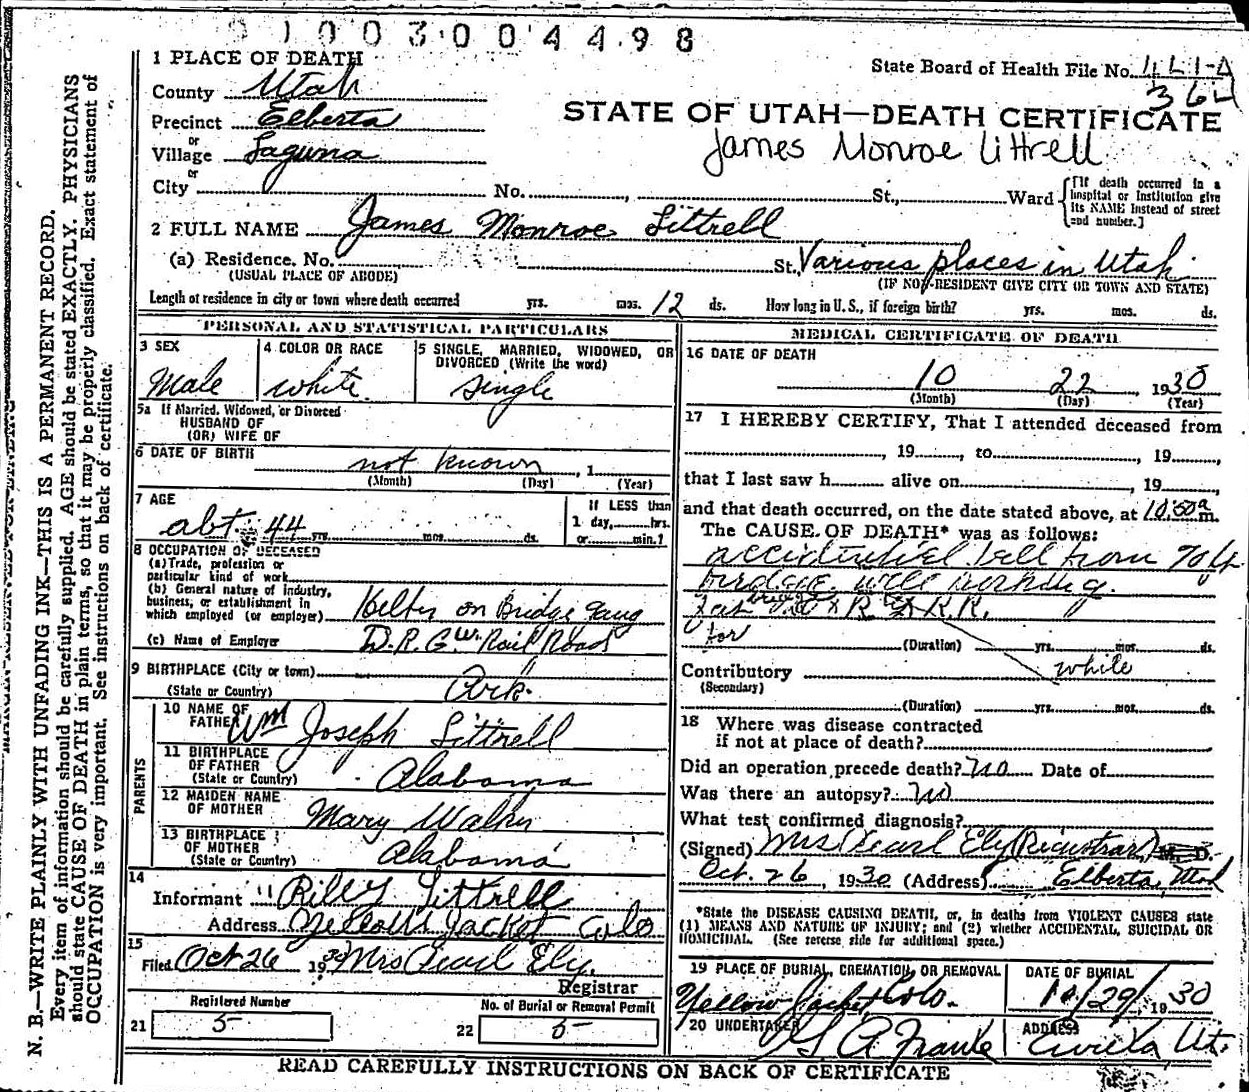 9 1 0 0 3 0 0 4 4 9 8
1 PLACE OF DEATH
State Board of Health File No.
364
County Utah
Precinct Elberta
or
Village Laguna
or
City No. , St., Ward
[If death occurred in a hospital or institution give its NAME instead of street and number.]
STATE OF UTAH—DEATH CERTIFICATE
James Monroe Littrell
2 FULL NAME James Monroe Littrell
(a) Residence. No. St. Various places in Utah
(USUAL PLACE OF ABODE) (IF NON-RESIDENT GIVE CITY OR TOWN AND STATE)
Length of residence in city or town where death occurred yrs. mos. 12 ds. How long in U.S., if foreign birth? yrs. mos. ds.
PERSONAL AND STATISTICAL PARTICULARS
3 SEX
Male
4 COLOR OR RACE
white
5 SINGLE, MARRIED, WIDOWED, OR DIVORCED (Write the word)
Single
5a If Married, Widowed, or Divorced
HUSBAND OF
(OR) WIFE OF
6 DATE OF BIRTH not known , 1
(Month) (Day) (Year)
7 AGE
abt. 44 yrs. mos. ds.
If LESS than
1 day, hrs.
or min.?
8 OCCUPATION OF DECEASED
(a) Trade, profession or
particular kind of work
(b) General nature of industry,
business, or establishment in
which employed (or employer) Helter on Bridge Gang
(c) Name of Employer D.R.G.W. Rail Road
9 BIRTHPLACE (City or town)
(State or Country) Ark.
PARENTS
10 NAME OF
FATHER Wm Joseph Littrell
11 BIRTHPLACE
OF FATHER
(State or Country) Alabama
12 MAIDEN NAME
OF MOTHER Mary Walker
13 BIRTHPLACE
OF MOTHER
(State or Country) Alabama
14
Informant Riley Littrell
Address Yellow Jacket Colo
15
Filed Oct 26 1930 Mrs Pearl Ely.
Registrar
Registered Number
21 5
No. of Burial or Removal Permit
22 5
MEDICAL CERTIFICATE OF DEATH
16 DATE OF DEATH
10 22 1930
(Month) (Day) (Year)
17 I HEREBY CERTIFY, That I attended deceased from
, 19 , to , 19 ,
that I last saw h alive on , 19
and that death occurred, on the date stated above, at 10:50 a m.
The CAUSE OF DEATH* was as follows:
accidential fell from
bridge
R.R.
for
(Duration) yrs. mos. ds.
Contributory white
(Secondary)
(Duration) yrs. mos. ds.
18 Where was disease contracted
if not at place of death?
Did an operation precede death? no Date of
Was there an autopsy? no
What test confirmed diagnosis?
(Signed) Mrs Pearl Ely (Registrar) M. D.
Oct. 26, 1930 (Address) Elberta,
*State the DISEASE CAUSING DEATH, or, in deaths from VIOLENT CAUSES state
(1) MEANS AND NATURE OF INJURY; and (2) whether ACCIDENTAL, SUICIDAL OR
HOMICIDAL. (See reverse side for additional space.)
19 PLACE OF BURIAL, CREMATION, OR REMOVAL
Yellow Jacket Colo.
DATE OF BURIAL
10/29/ 1930
20 UNDERTAKER
A Franke
ADDRESS
Eureka Ut.
READ CAREFULLY INSTRUCTIONS ON BACK OF CERTIFICATE
N. B.—WRITE PLAINLY WITH UNFADING INK—THIS IS A PERMANENT RECORD.
Every item of information should be carefully supplied. AGE should be stated EXACTLY. PHYSICIANS
should state CAUSE OF DEATH in plain terms, so that it may be properly classified. Exact statement of
OCCUPATION is very important. See instructions on back of certificate.